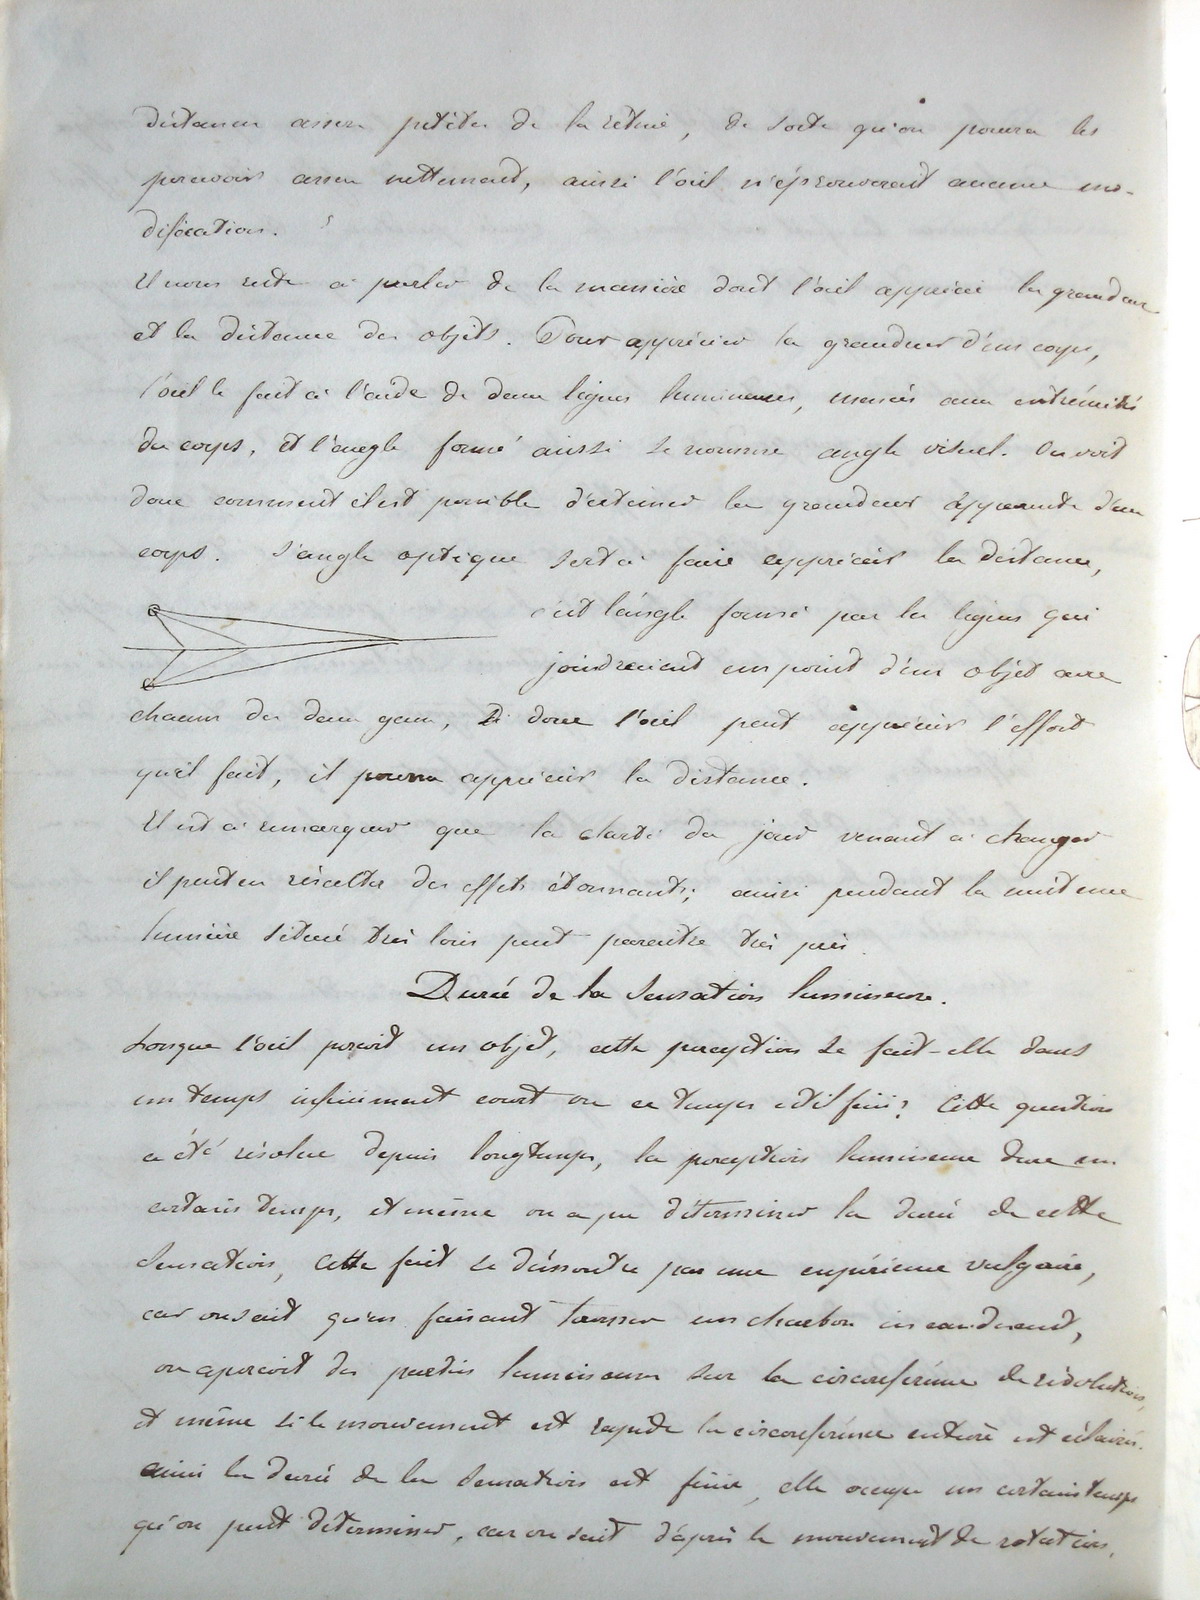 distances assez petites de la rétine, de sorte qu'on pourra les
percevoir assez nettement, ainsi l'œil n'éprouverait aucune mo-
dification.
Il nous reste à parler de la manière dont l'œil apprécie la grandeur
et la distance des objets. Pour apprécier la grandeur d'un corps,
l'œil le fait à l'aide de deux lignes lumineuses, menées aux extrémités
du corps, et l'angle formé aussi se nomme angle visuel. On voit
donc comment il est possible d'estimer la grandeur apparente d'un
corps. L'angle optique sert à faire apprécier la distance,
c'est l'angle formé par les lignes qui
joindraient un point d'un objet avec
chacun des deux yeux, Si donc l'œil peut apprécier l'effort
qu'il fait, il pourra apprécier la distance.
Il est à remarquer que la clarté du jour venant à changer
il peut en résulter des effets étonnants; ainsi pendant la nuit une
lumière située très loin peut paraître très près.
Durée de la Sensation lumineuse.
Lorsque l'œil perçoit un objet, cette perception se fait-elle dans
un temps infiniment court ou ce temps est il fini? Cette question
a été résolue depuis longtemps, la perception lumineuse dure un
certain temps, et même on a pu déterminer la durée de cette
sensation, Cette fait se démontre par une expérience vulgaire,
car on sait qu'en faisant tourner un charbon incandescent,
on aperçoit des parties lumineuses sur la circonférence de révolution,
et même si le mouvement est rapide la circonférence entière est éclairée.
ainsi la durée de la sensation est finie, elle occupe un certain temps
qu'on peut déterminer, car on sait d'après le mouvement de rotation,